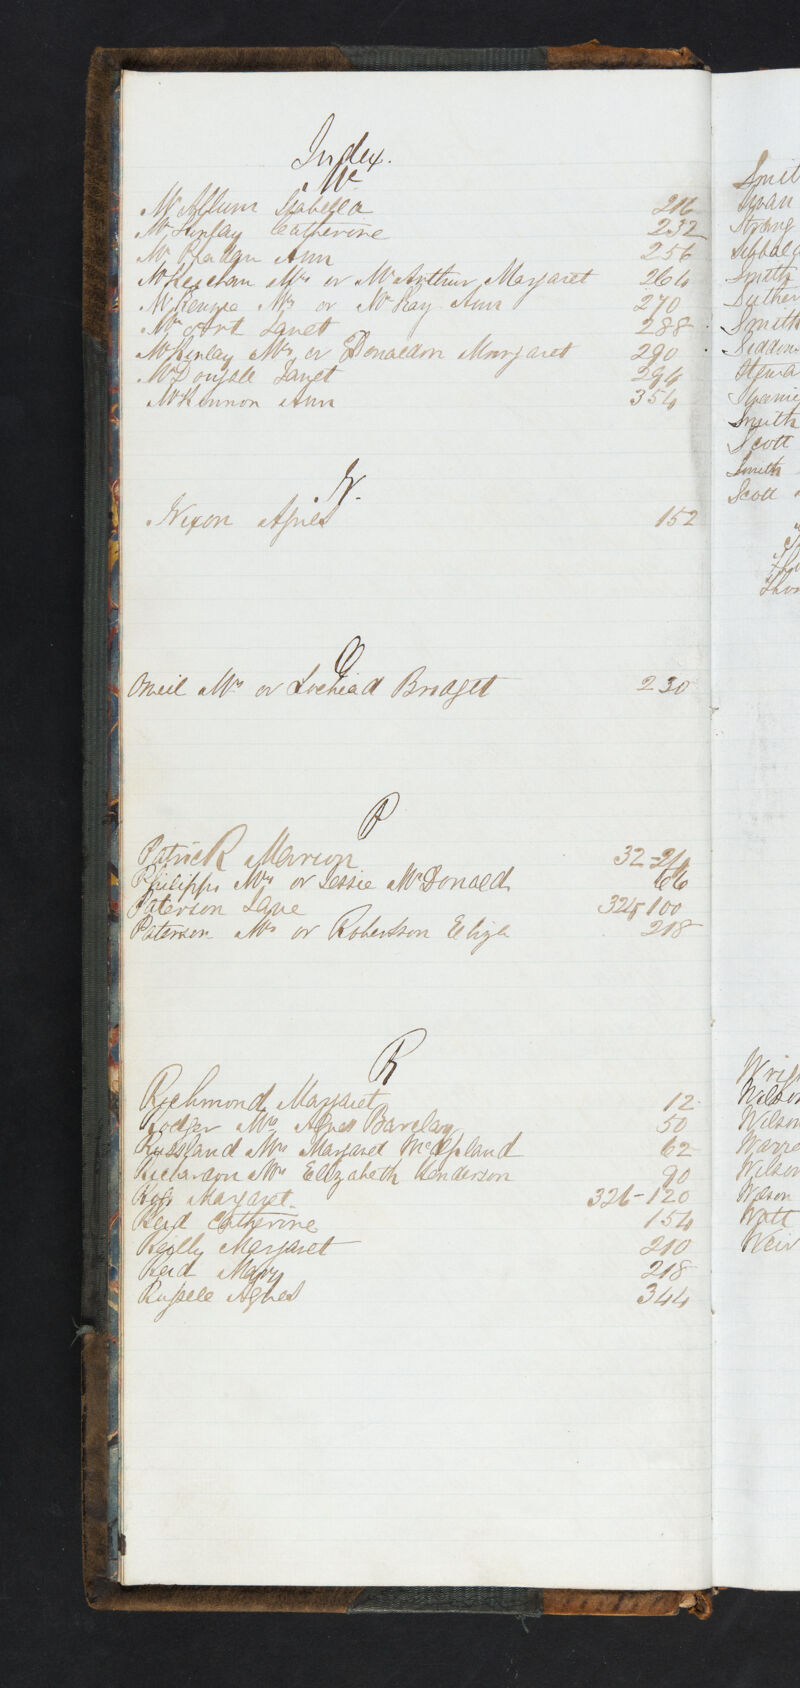 Index.
Mc
McAllum Isabella 216
McKinlay Catherine 232
Mc Ann 256
McKeachan Mrs or McArthur Margaret 264
McKenzie Mrs or McKay Ann 270
Mc Janet 288
McKinlay Mrs or Donaldson Margaret 290
McDougall Janet 294
McKinnon Ann 354
N.
Nixon Agnes 152
O
Oneil Mrs or Lochead Bridget 230
P
Patrick Marion 32-24
Philipps Mrs or Jessie McDonald 66
Paterson Jane 324-100
Paterson Mrs or Robertson Eliza 218
R
Richmond Margaret 12
Rodger Mrs Agnes Barclay 50
Russland Mrs Margaret 62
Richardson Mrs Elizabeth Henderson 90
Ross Margaret 326-120
Reid Catherine 154
Reilly Margaret 210
Reid Mary 218
Russell Agnes 344
Smit
Swan
Strang
Sibbald
Smith
Suther
Smith
Siddons
Stewa
Smith
Scott
Smith
Scott
Th
Thom
Wrig
Wilson
Wilson
Warre
Wilson
Wilson
Watt
Weir